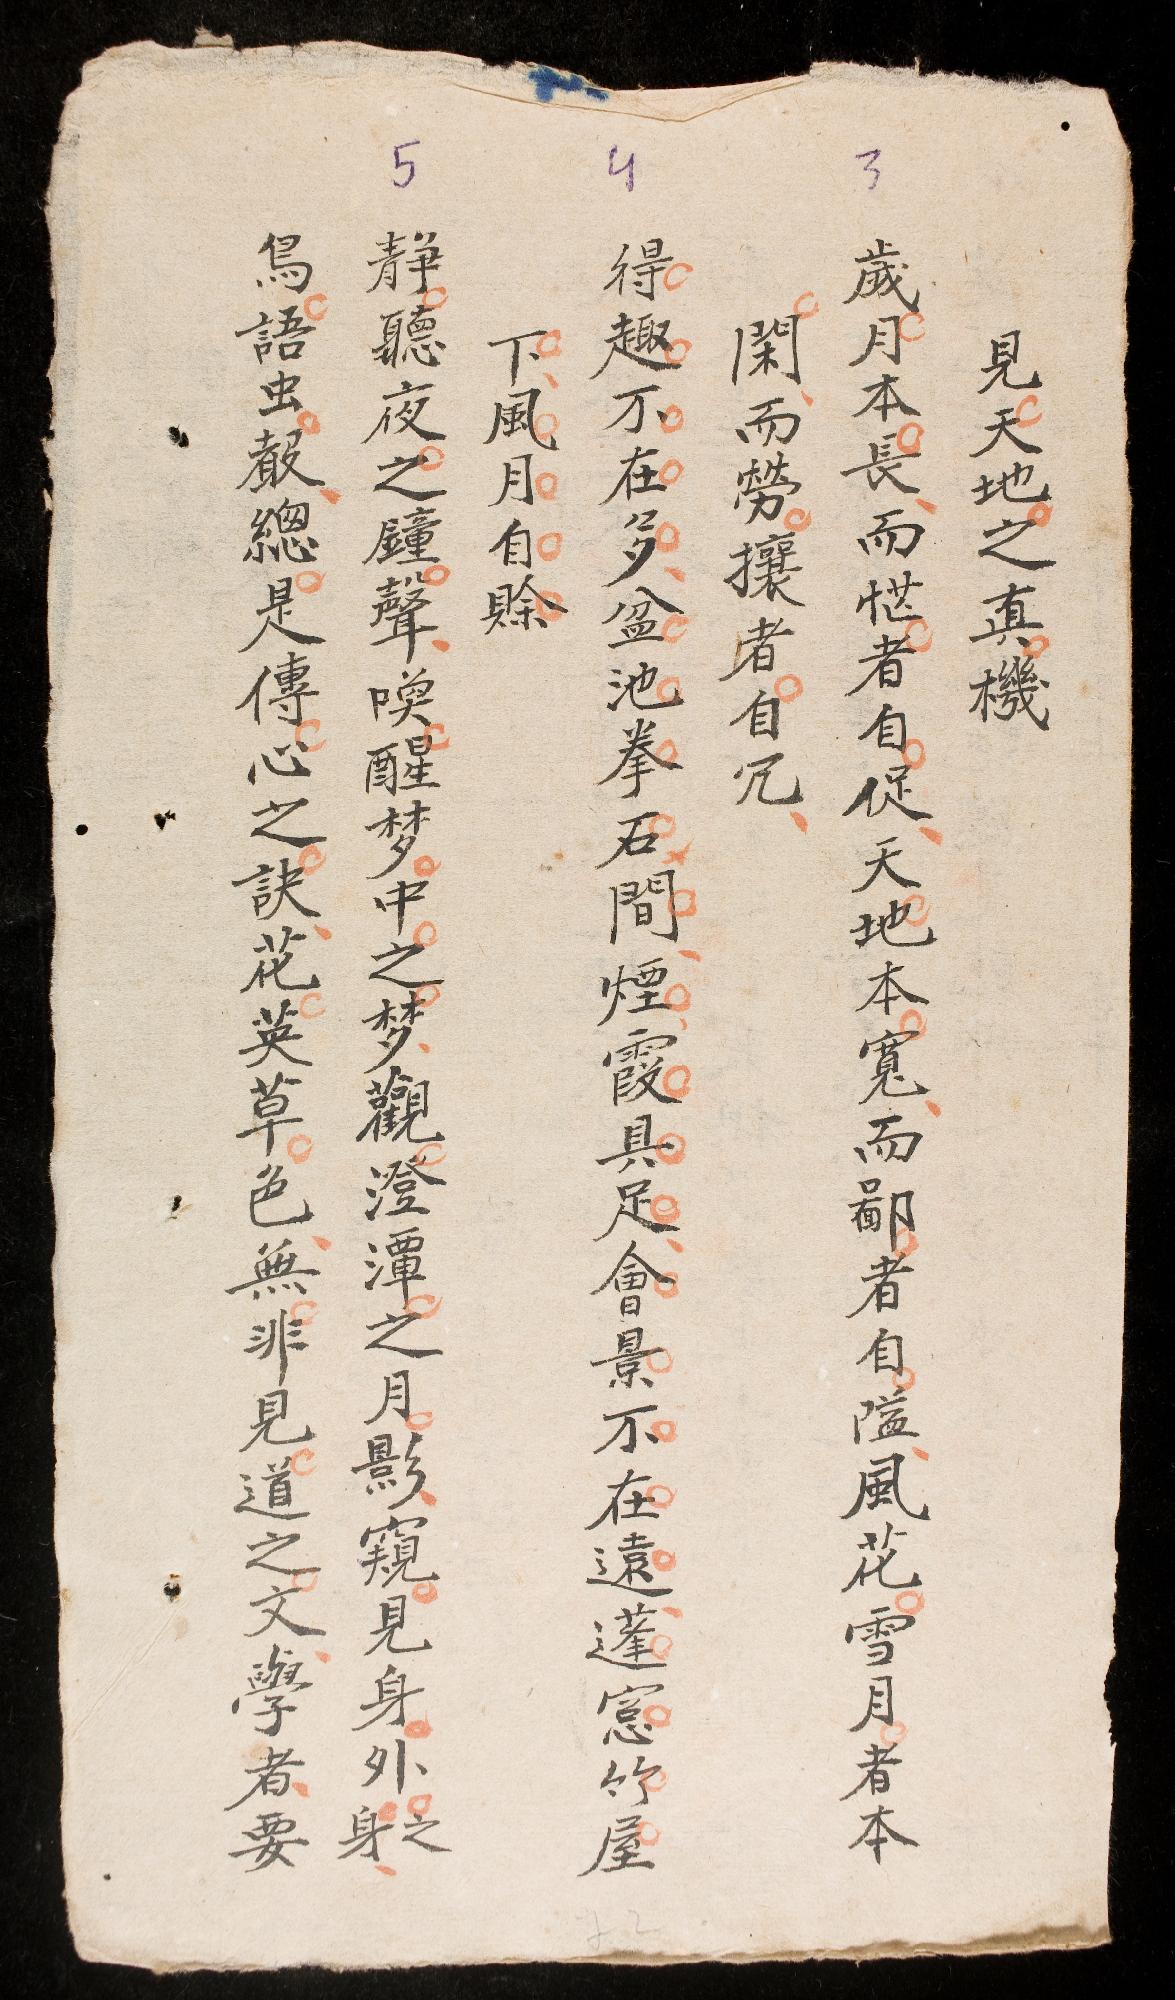 見天地之真機
3
歲月本長而忙者自促天地本寬而鄙者自隘風花雪月者本
閑而勞攘者自冗
4
得趣不在多盆池拳石間煙霞具足會景不在遠蓬窓竹屋
下風月自賒
5
静聽夜之鐘聲喚醒梦中之梦觀澄潭之月影窺見身外之身
鳥語虫聲總是傳心之訣花英草色無非見道之文學者要